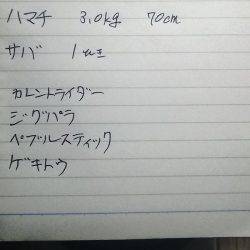 ハマチ 3.0kg 70cm
サバ 1匹
カレントライダー
ジグパラ
ペブルスティック
ゲキトウ